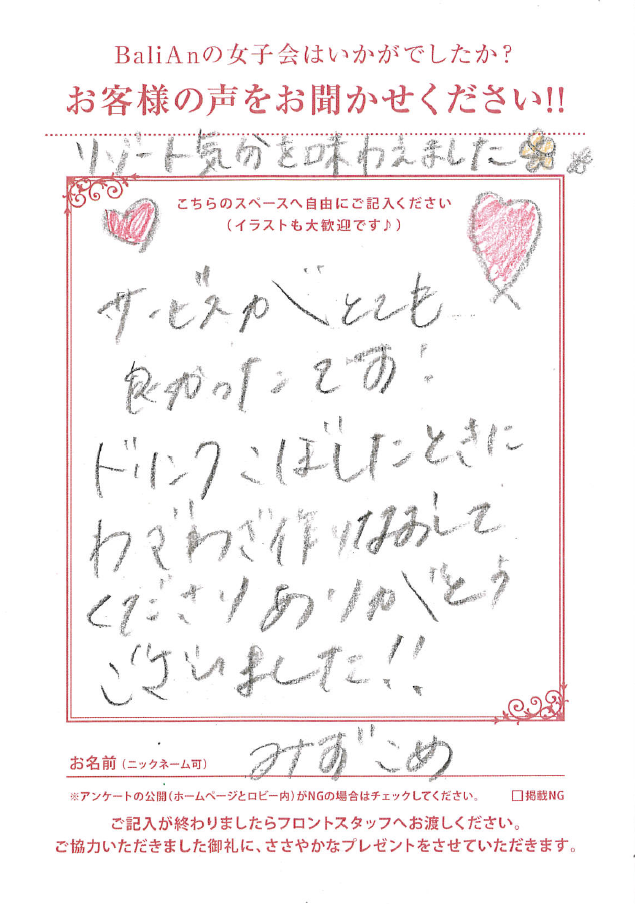 BaliAnの女子会はいかがでしたか?
お客様の声をお聞かせください!!
リゾート気分を味わえました
こちらのスペースへ自由にご記入ください
(イラストも大歓迎です♪)
サービスがとても
良かったです!
ドリンクこぼしたときに
わざわざ作りなおして
くださりありがとう
ございました!!
お名前(ニックネーム可) みずこめ
※アンケートの公開(ホームページとロビー内)がNGの場合はチェックしてください。 □掲載NG
ご記入が終わりましたらフロントスタッフへお渡しください。
ご協力いただきました御礼に、ささやかなプレゼントをさせていただきます。